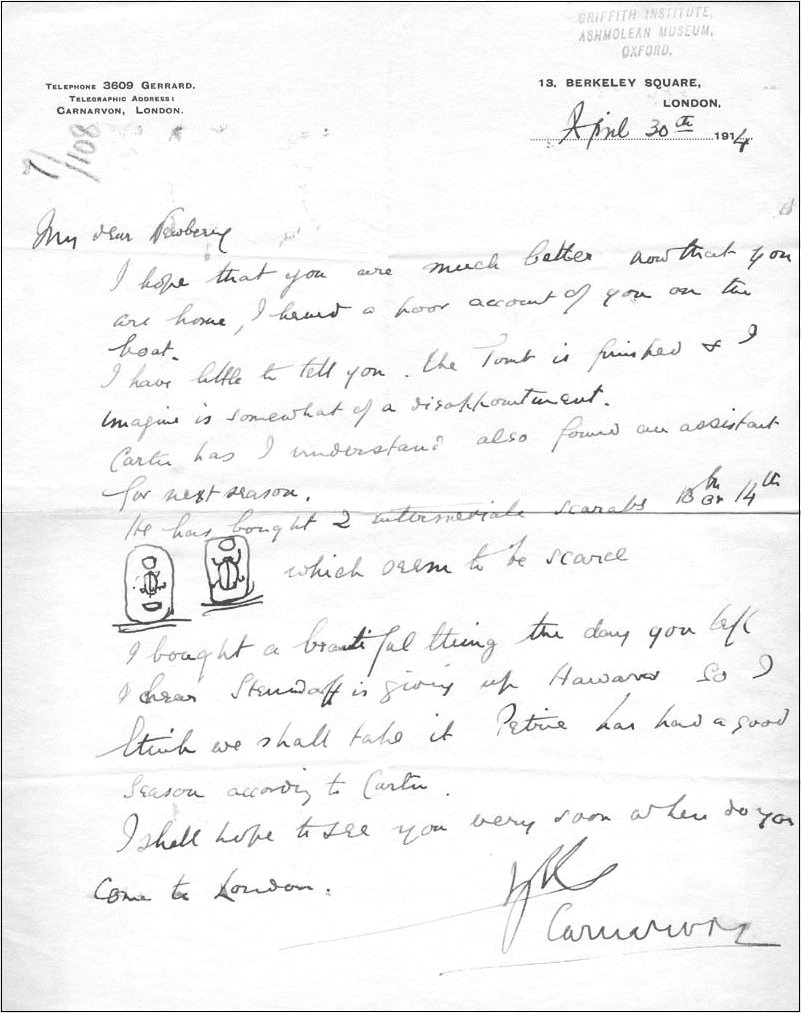 GRIFFITH INSTITUTE,
ASHMOLEAN MUSEUM,
OXFORD.
TELEPHONE 3609 GERRARD.
TELEGRAPHIC ADDRESS:
CARNARVON, LONDON.
13, BERKELEY SQUARE,
LONDON,
April 30th 1914
7/1108
My dear Newberry
I hope that you are much better now that you
are home, I heard a poor account of you on the
boat.
I have little to tell you. The Tomb is finished & I
imagine is somewhat of a disappointment.
Carter has I understand also found an assistant
for next season.
He has bought 2 intermediate scarabs 13 or 14th
which seem to be scarce
I bought a beautiful thing the day you left
I hear Steindorff is giving up Hawara So I
think we shall take it Petrie has had a good
season according to Carter.
I shall hope to see you very soon when do you
come to London.
Carnarvon